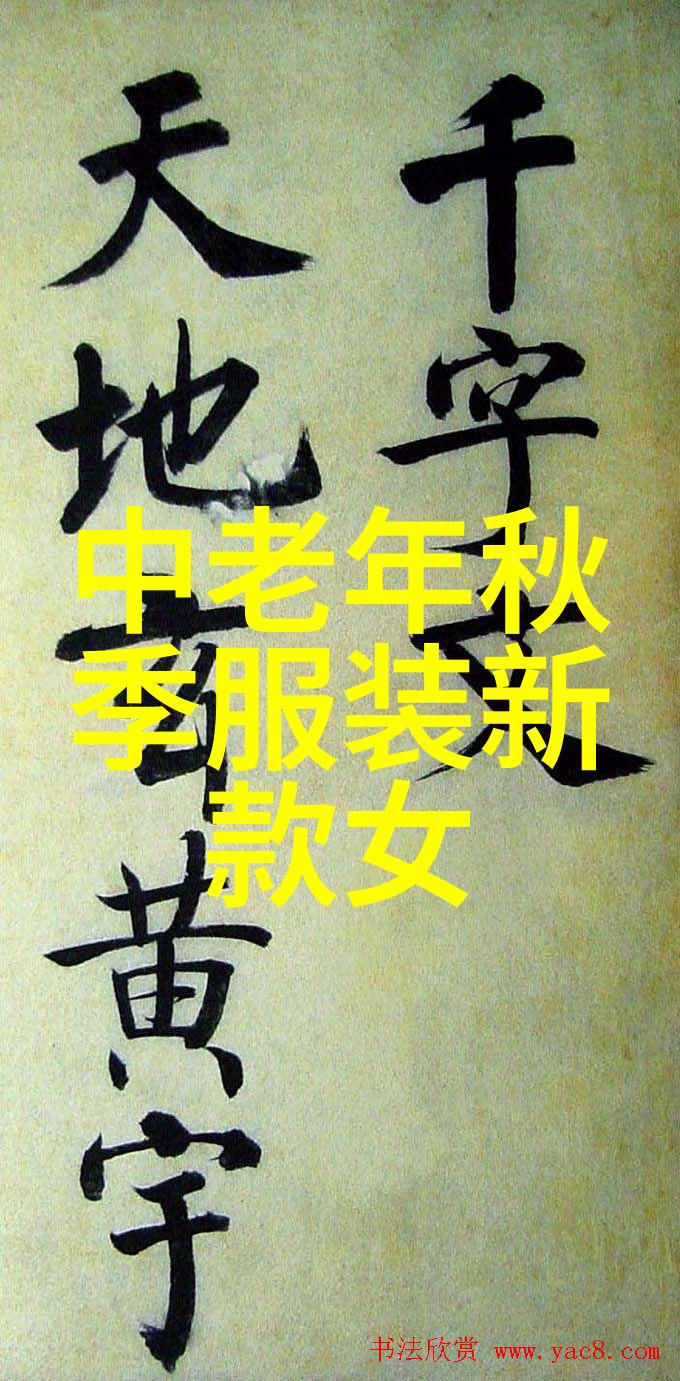 千字文
天地黄宇
中老年秋
季服装新
款女
书法欣赏 www.yac8.com